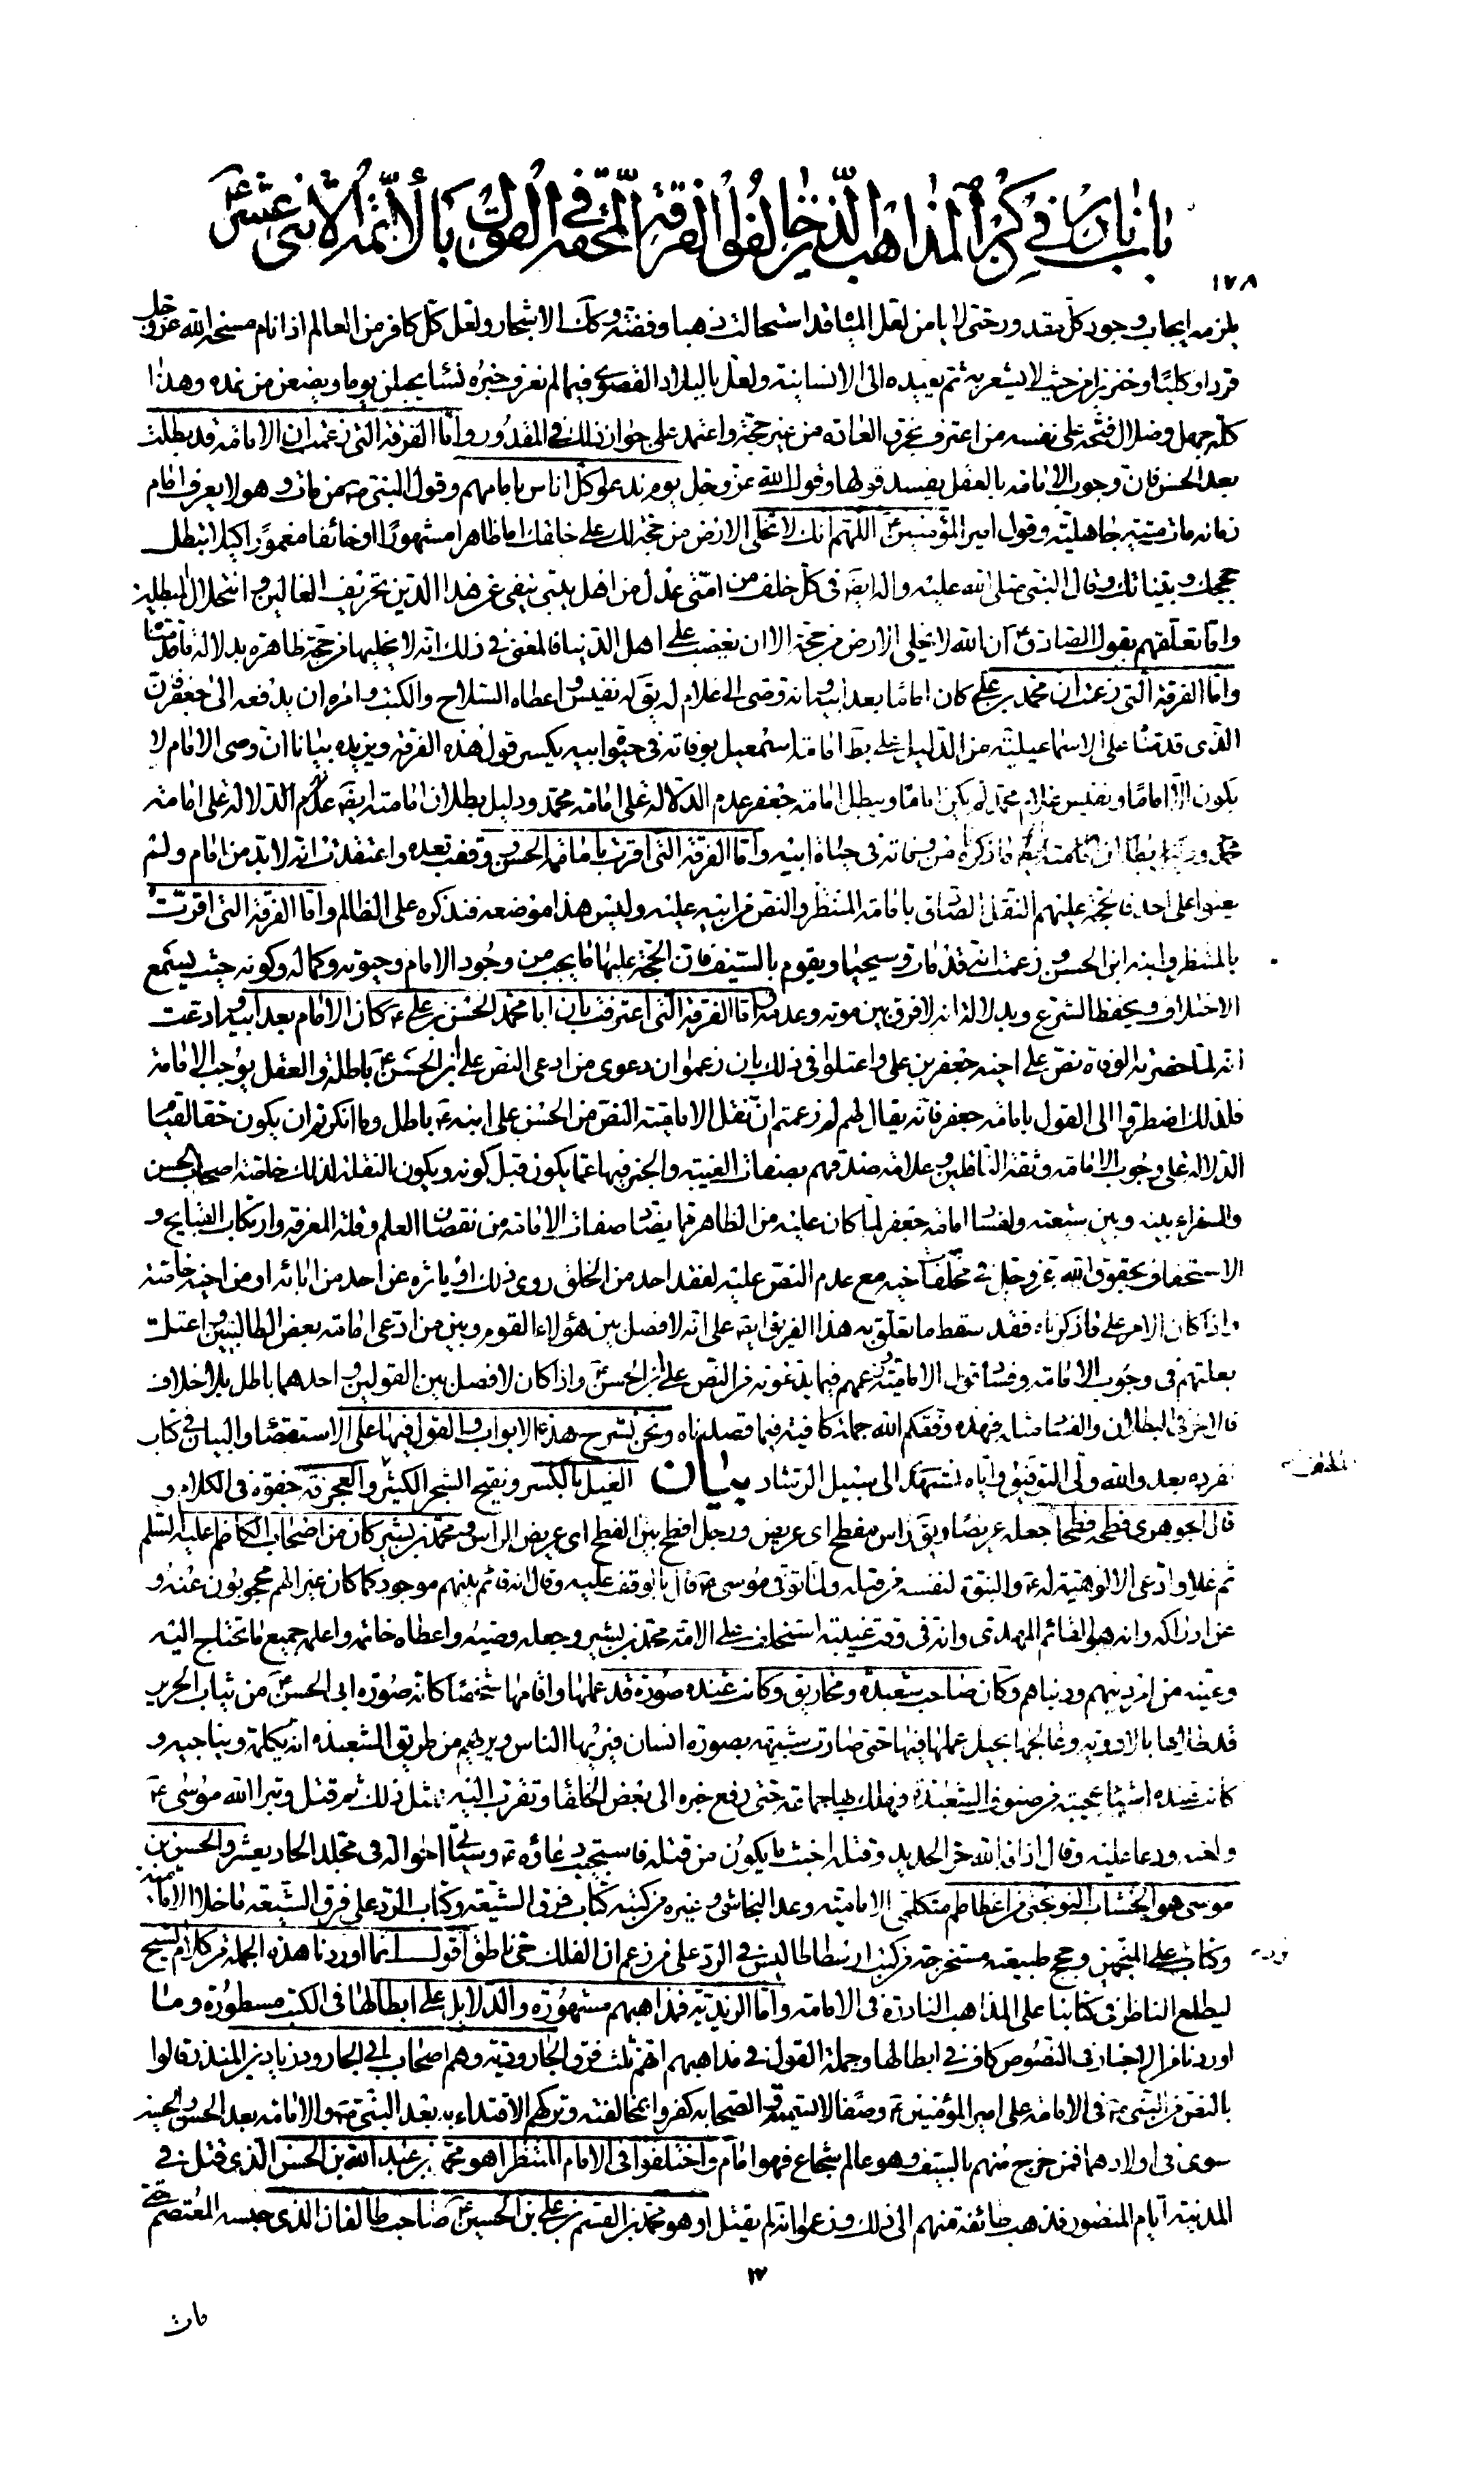 باب نادر في ذكر المذاهب الذين خالفوا الفرقة المحقة في القول بالأئمة الاثني عشر ع
١٧٨
يلزمه ايجاب وجود كل مقدور حتى لا يامن لعل المياه قد استحالت ذهبا وفضة وكذلك الاشجار ولعل كل كافر من العالم اذا نام مسخه الله عز وجل
قردا وكلبا وخنزيرا من حيث لا يشعر به ثم يعيده الى الانسانية ولعل بالبلاد القصوى فيما لم نعرف خبره نساء يحبلن يوما ويضعن من غده وهذا
كله جهل وضلال فتحه على نفسه من اعترف بخرق العادة من غير حجة واعتمد على جواز ذلك في المقدور واما الفرقة التي زعمت ان الامامة قد بطلت
بعد الحسن فان وجوب الامامة بالعقل يفسد قولها وقول الله عز وجل يوم ندعو كل اناس بامامهم وقول النبي ص من مات وهو لا يعرف امام
زمانه مات ميتة جاهلية وقول امير المؤمنين ع اللهم انك لا تخلي الارض من حجة لك على خلقك اما ظاهرا مشهورا او خائفا مغمورا كيلا تبطل
حججك وبيناتك وقال النبي صلى الله عليه واله ايضه في كل خلف من امتي عدل من اهل بيتي ينفي عن هذا الدين تحريف الغالين وانتحال المبطلين
واما تعلقهم بقول الصادق ع ان الله لا يخلي الارض من حجة الا ان يغضب على اهل الدنيا فالمعنى في ذلك انه لا يخليها من حجة ظاهرة بدلالة ما قدمناه
واما الفرقة التي زعمت ان محمد بن علي كان اماما بعد ابيه وانه وصى الى غلام له يق له نفيس واعطاه السلاح والكتب وامره ان يدفعه الى جعفر فان
الذي قدمنا على الاسماعيلية من الدليل على بط امامة اسمعيل بوفاته في حيوة ابيه يكسر قول هذه الفرقة ويزيده بيانا ان وصي الامام لا
يكون الا اماما ونفيس غلام محمد لم يكن اماما ويبطل امامة جعفر عدم الدلالة على امامة محمد ودليل بطلان امامته ايضه عدم الدلالة على امامة
محمد ودليل بطلان امامته ايضه ما ذكرناه من وفاته في حياة ابيه واما الفرقة التي اقرت بامامة الحسن ووقفت بعده واعتقدت انه لا بد من امام ولم
يعينوا على احد فالحجة عليهم النقل الصادق بامامة المنتظر والنص من ابيه عليه وليس هذا موضعه فنذكره على النظام واما الفرقة التي اقرت
بالمنتظر وانه ابن الحسن وزعمت انه قد مات وسيحيا ويقوم بالسيف فان الحجة عليها ما يجب من وجود الامام وحيوته وكماله وكونه حيث يسمع
الاختلاف ويحفظ الشرع وبدلالة انه لا فرق بين موته وعدمه واما الفرقة التي اعترفت بان ابا محمد الحسن بن علي ع كان الامام بعد ابيه وادعت
انه لما حضرته الوفاة نص على اخيه جعفر بن علي واعتلوا في ذلك بان زعموا ان دعوى من ادعى النص على ابن الحسن ع باطلة والعقل يوجب الامامة
فلذلك اضطروا الى القول بامامة جعفر فانه يقال لهم لم زعمتم ان نقل الامامية النص من الحسن على ابنه ع باطل وما انكرتم ان يكون حقا لقيام
الدلالة على وجوب الامامة وثقة الناقلين وعلامة صدقهم بصفات الغيبة والخبر فيها عما يكون قبل كونه ويكون النقلة لذلك خاصة اصحاب الحسن
والسفراء بينه وبين شيعته ولفساد امامة جعفر لما كان عليه من الظاهر مما يضاد صفات الامامة من نقصان العلم وقلة المعرفة وارتكاب القبايح و
الاستخفاف بحقوق الله عز وجل في مخلف اخيه مع عدم النص عليه لفقد احد من الخلق روى ذلك او ياثره عن احد من ابائه او من اخيه خاصة
واذا كان الامر على ما ذكرناه فقد سقط ما تعلق به هذا الفريق ايضه على انه لا فصل بين هؤلاء القوم وبين من ادعى امامة بعض الطالبيين واعتلت
بعلتهم في وجوب الامامة وفساد قول الامامية بزعمهم فيما يدعونه من النص على ابن الحسن ع واذا كان لا فصل بين القولين واحدهما باطل بلا خلاف
فالاخر في البطلان والفساد مثله فهذه وفقكم الله جملة كافية فيما قصدناه ونحن نشرح هذه الابواب والقول فيها على الاستقصاء والبيان في كتاب
نفرده بعد والله ولي التوفيق واياه نستهدي الى سبيل الرشاد بيان الغيل بالكسر ويفتح الشجر الكثير والعجرفة جفوة في الكلام و
قال الجوهري فطحه فطحا جعله عريضا ويق راس مفطح اي عريض ورجل افطح بين الفطح اي عريض الراس ومحمد بن بشير كان من اصحاب الكاظم عليه السلم
ثم غلا وادعى الالوهية له ع والنبوة لنفسه من قبله ولما توفي موسى ع قال بالوقف عليه وقال انه قائم بينهم موجود كما كان غير انهم محجوبون عنه و
عن ادراكه وانه هو القائم المهدي وانه في وقت غيبته استخلف على الامة محمد بن بشير وجعله وصيه واعطاه خاتمه واعلمه جميع ما يحتاج اليه
رعيته من امر دينهم ودنياهم وكان صاحب شعبذة ومخاريق وكانت عنده صورة قد عملها واقامها شخصا كانه صورة ابي الحسن ع من ثياب الحرير
قد طلاها بالادوية وعالجها بحيل عملها فيها حتى صارت شبيهة بصورة انسان فيريها الناس ويريهم من طريق الشعبذة انه يكلمه ويناجيه و
كانت عنده اشياء عجيبة من صنوف الشعبذة فهلك بها جماعة حتى رفع خبره الى بعض الخلفاء وتقرب اليه بمثل ذلك ثم قتل وتبرا الله موسى ع
ولعنه ودعا عليه وقال اذاقه الله حر الحديد وقتله اخبث ما يكون من قتلة فاستجيب دعاؤه ع وسياتي احواله في مجلد الحادي عشر والحسن بن
موسى هو الخشاب النوبختي من اعاظم متكلمي الامامية وعد النجاشي وغيره من كتبه كتاب فرق الشيعة وكتاب الرد على فرق الشيعة ما خلا الامامية
وكتاب على المنجمين وحجج طبيعية مستخرجة من كتب ارسطاطاليس في الرد على من زعم ان الفلك حي ناطق اقول انما اوردنا هذه الجملة من كلام الشيخ
ليطلع الناظر في كتابنا على المذاهب النادرة في الامامة واما الزيدية فمذاهبهم مشهورة والدلايل على ابطالها في الكتب مسطورة وما
اوردنا من الاخبار في النصوص كاف في ابطالها وجملة القول في مذاهبهم انهم ثلث فرق الجارودية وهم اصحاب ابي الجارود زياد بن المنذر قالوا
بالنص من النبي ص في الامامة على امير المؤمنين ع وصفا لا تسمية والصحابة كفروا بمخالفته وتركهم الاقتداء به بعد النبي ص والامامة بعد الحسن والحسين
شورى في اولادهما فمن خرج منهم بالسيف وهو عالم شجاع فهو امام واختلفوا في الامام المنتظر اهو محمد بن عبد الله بن الحسن الذي قتل في
المدينة ايام المنصور فذهب طائفة منهم الى ذلك وزعموا انه لم يقتل او هو محمد بن القسم بن علي بن الحسين ع صاحب طالقان الذي حبسه المعتصم حتى
١٧
مات